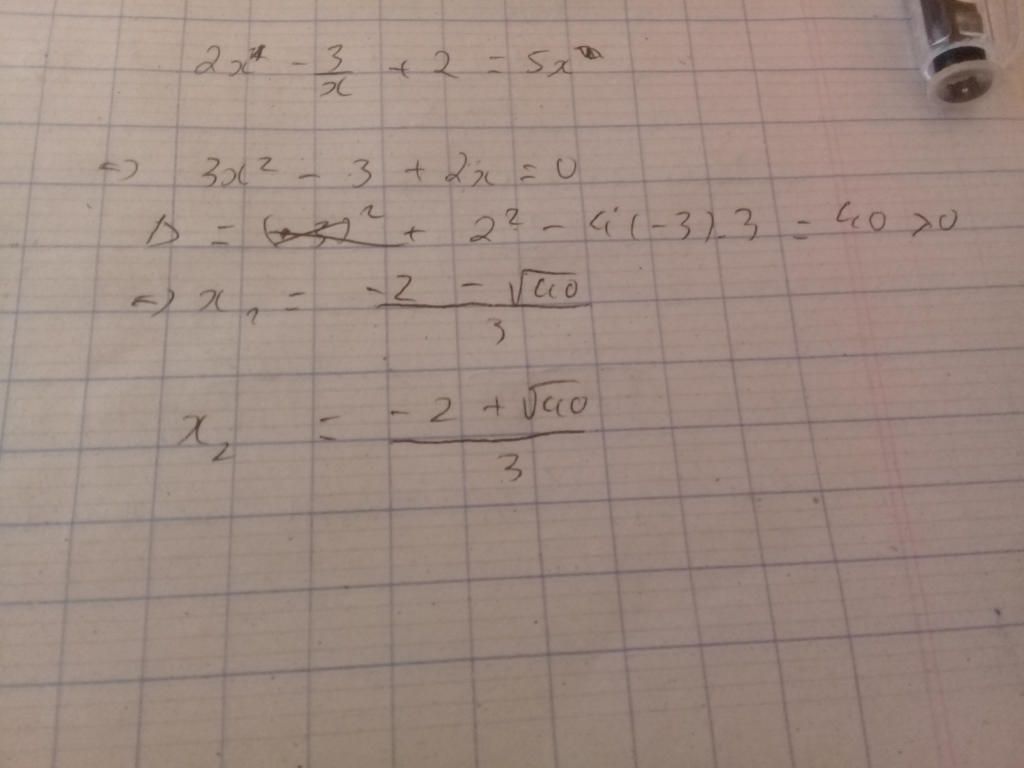 2x - 3/x + 2 = 5x
=> 3x² - 3 + 2x = 0
Δ = + 2² - 4(-3).3 = 40 > 0
=> x₁ = (-2 - √40)/3
x₂ = (-2 + √40)/3